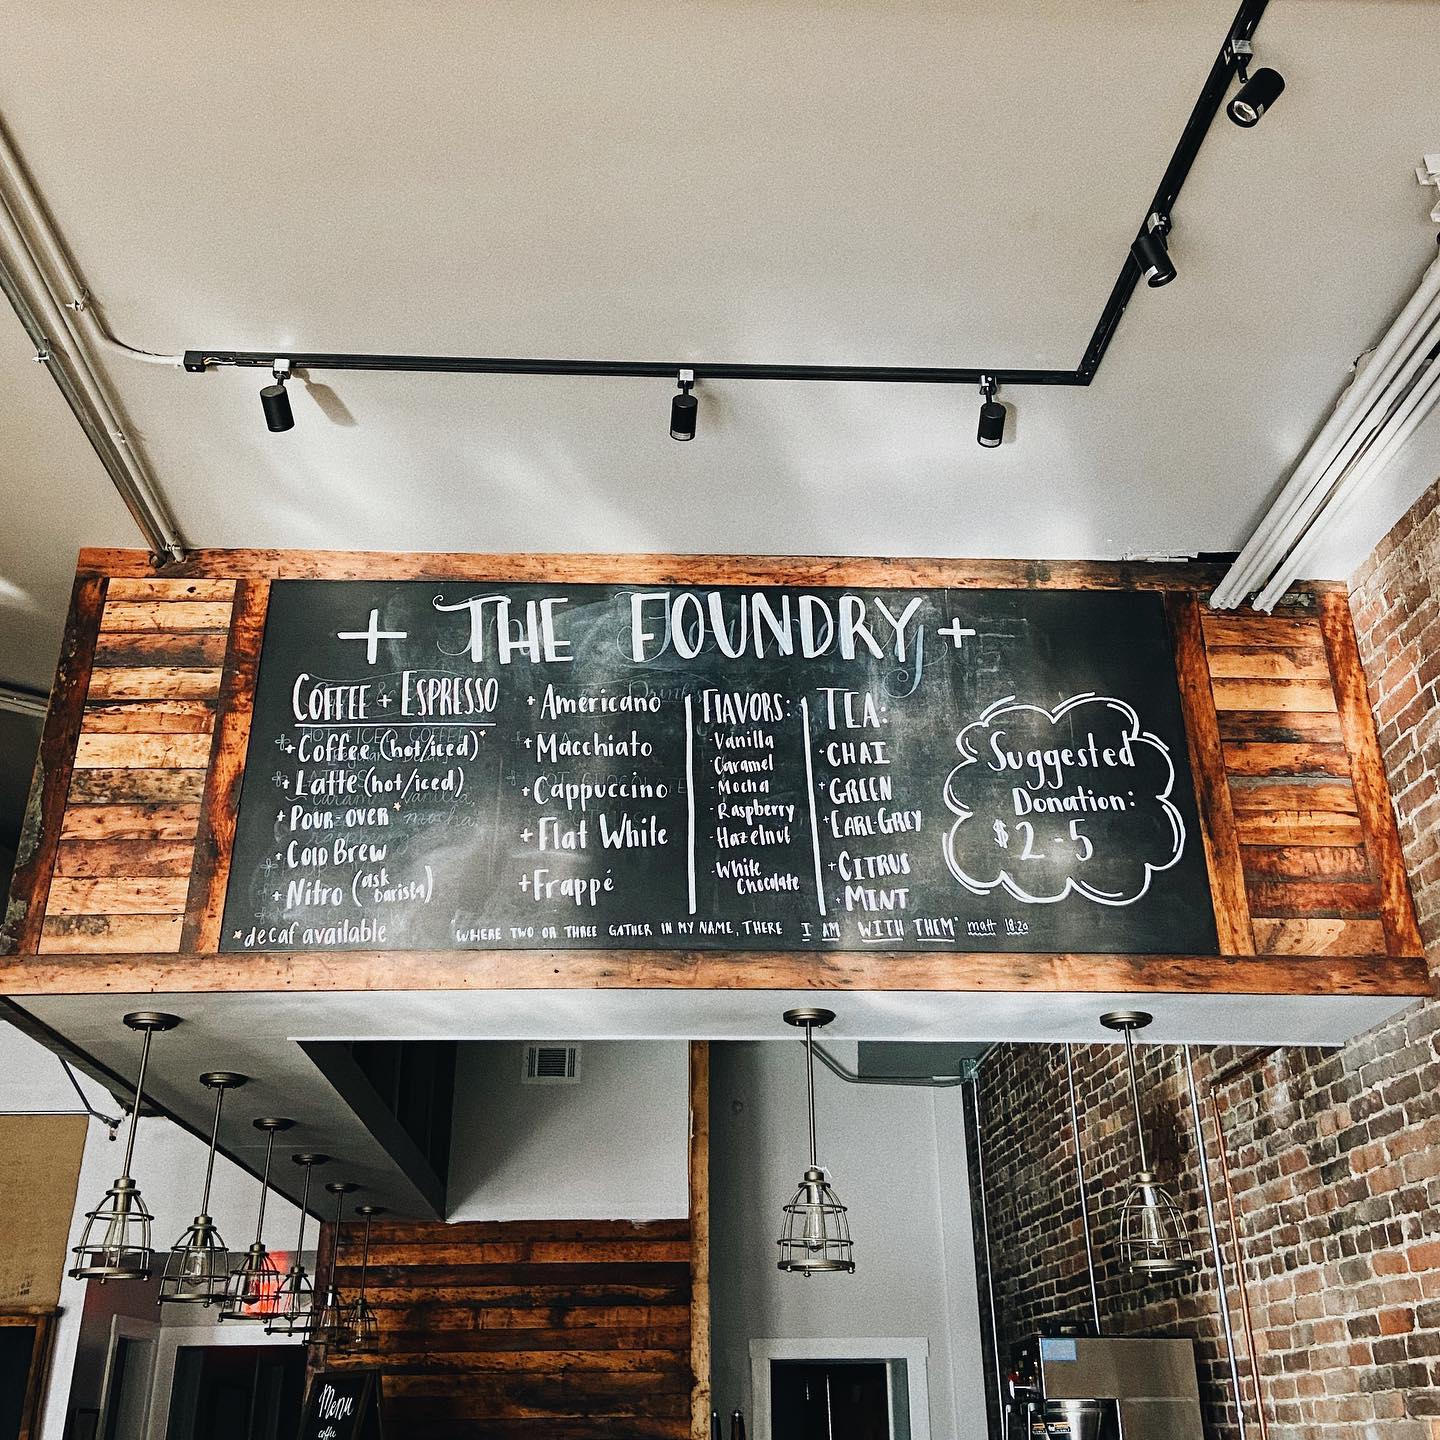 + THE FOUNDRY +
COFFEE + ESPRESSO
+ Coffee (hot/iced)*
+ Latte (hot/iced)
+ POUR-OVER *
+ COLD BREW
+ Nitro (ask barista)
*decaf available
+ Américano
+ Macchiato
+ Cappuccino
+ Flat White
+ Frappé
FLAVORS:
- Vanilla
- Caramel
- Mocha
- Raspberry
- Hazelnut
- White
Chocolate
TEA:
+ CHAI
+ GREEN
+ EARL-GREY
+ CITRUS
+ MINT
Suggested
Donation:
$2-5
"WHERE TWO OR THREE GATHER IN MY NAME, THERE I AM WITH THEM" matt 18:20
Menu
coffee